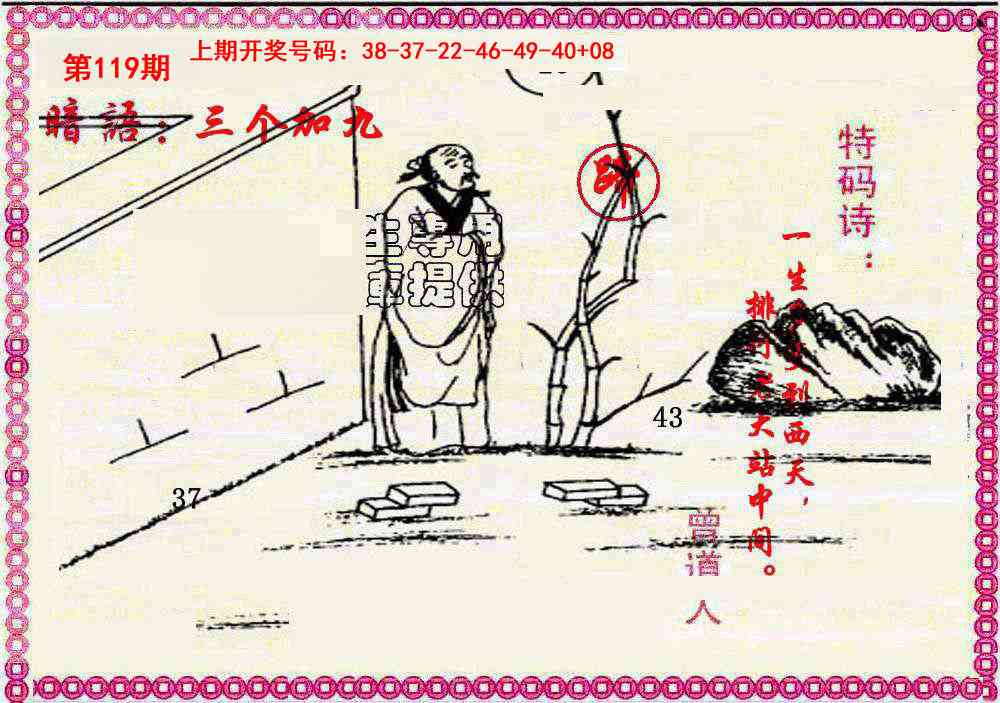 上期开奖号码：38-37-22-46-49-40+08
第119期
暗語：三个加九
特码诗：
一生 到西天，
排行老大站中间。
曾道人
專用
提供
43
37